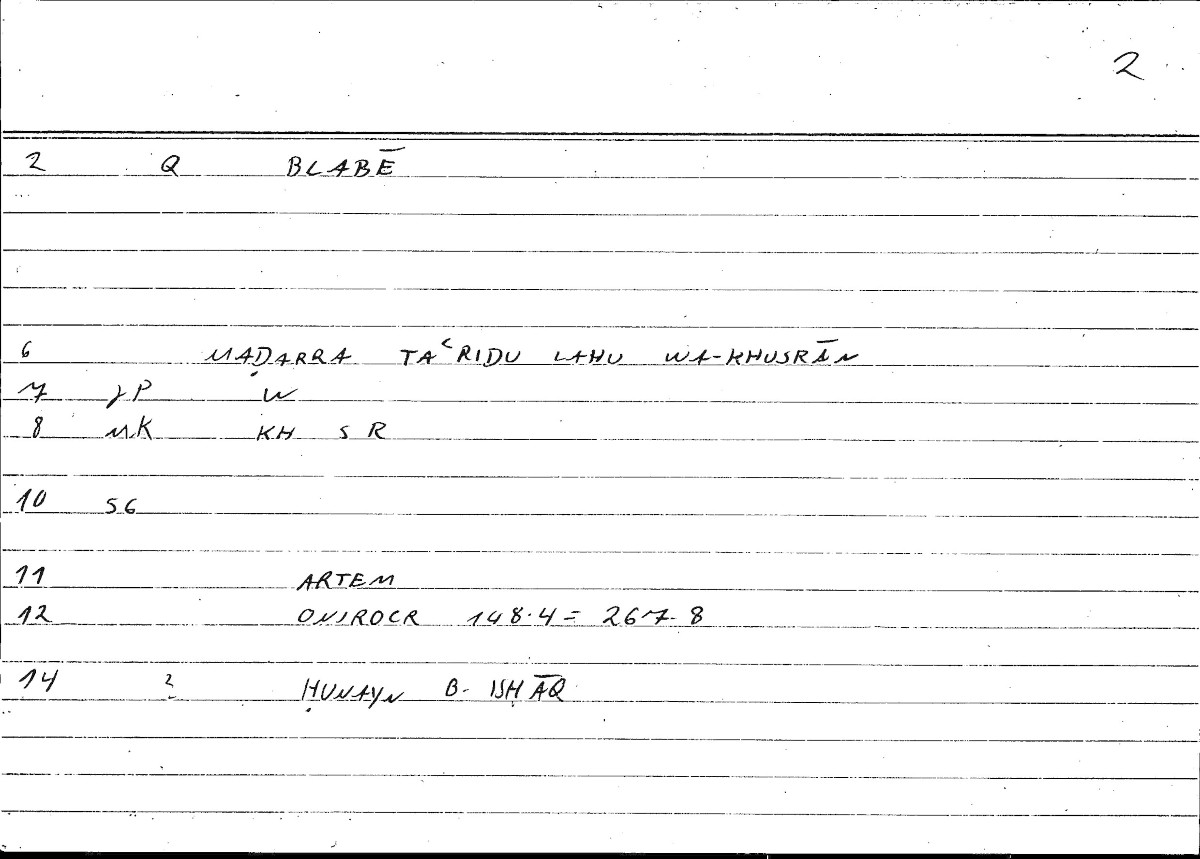 2
2 Q BLABĒ
6 MAḌARRA TAʿRIDU LAHU WA-KHUSRĀN
7 W
8 MK KH S R
10 SG
11 ARTEM
12 ONIROCR 148.4 = 267.8
14 2 ḤUNAYN B. ISḤĀQ